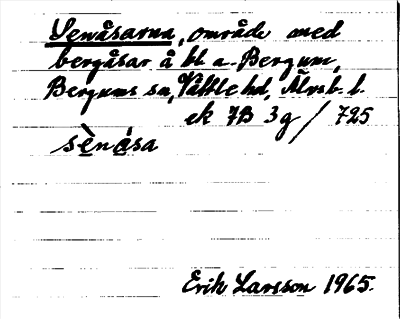 Senåsarna, område med
bergåsar å bl. a. Bergum,
Bergums sn, Vättle hd, Älvsb. l.
ek 7B 3g / 725
sènása
Erik Larsson 1965.